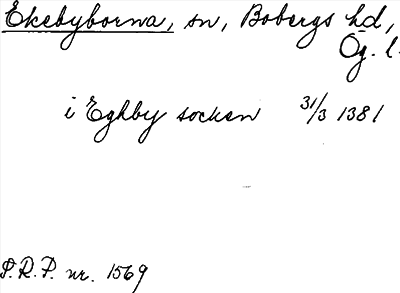 Ekebyborna, sn, Bobergs hd,
Ög. l.
i Eghby socken 31/3 1381
P.R.P. nr. 1569